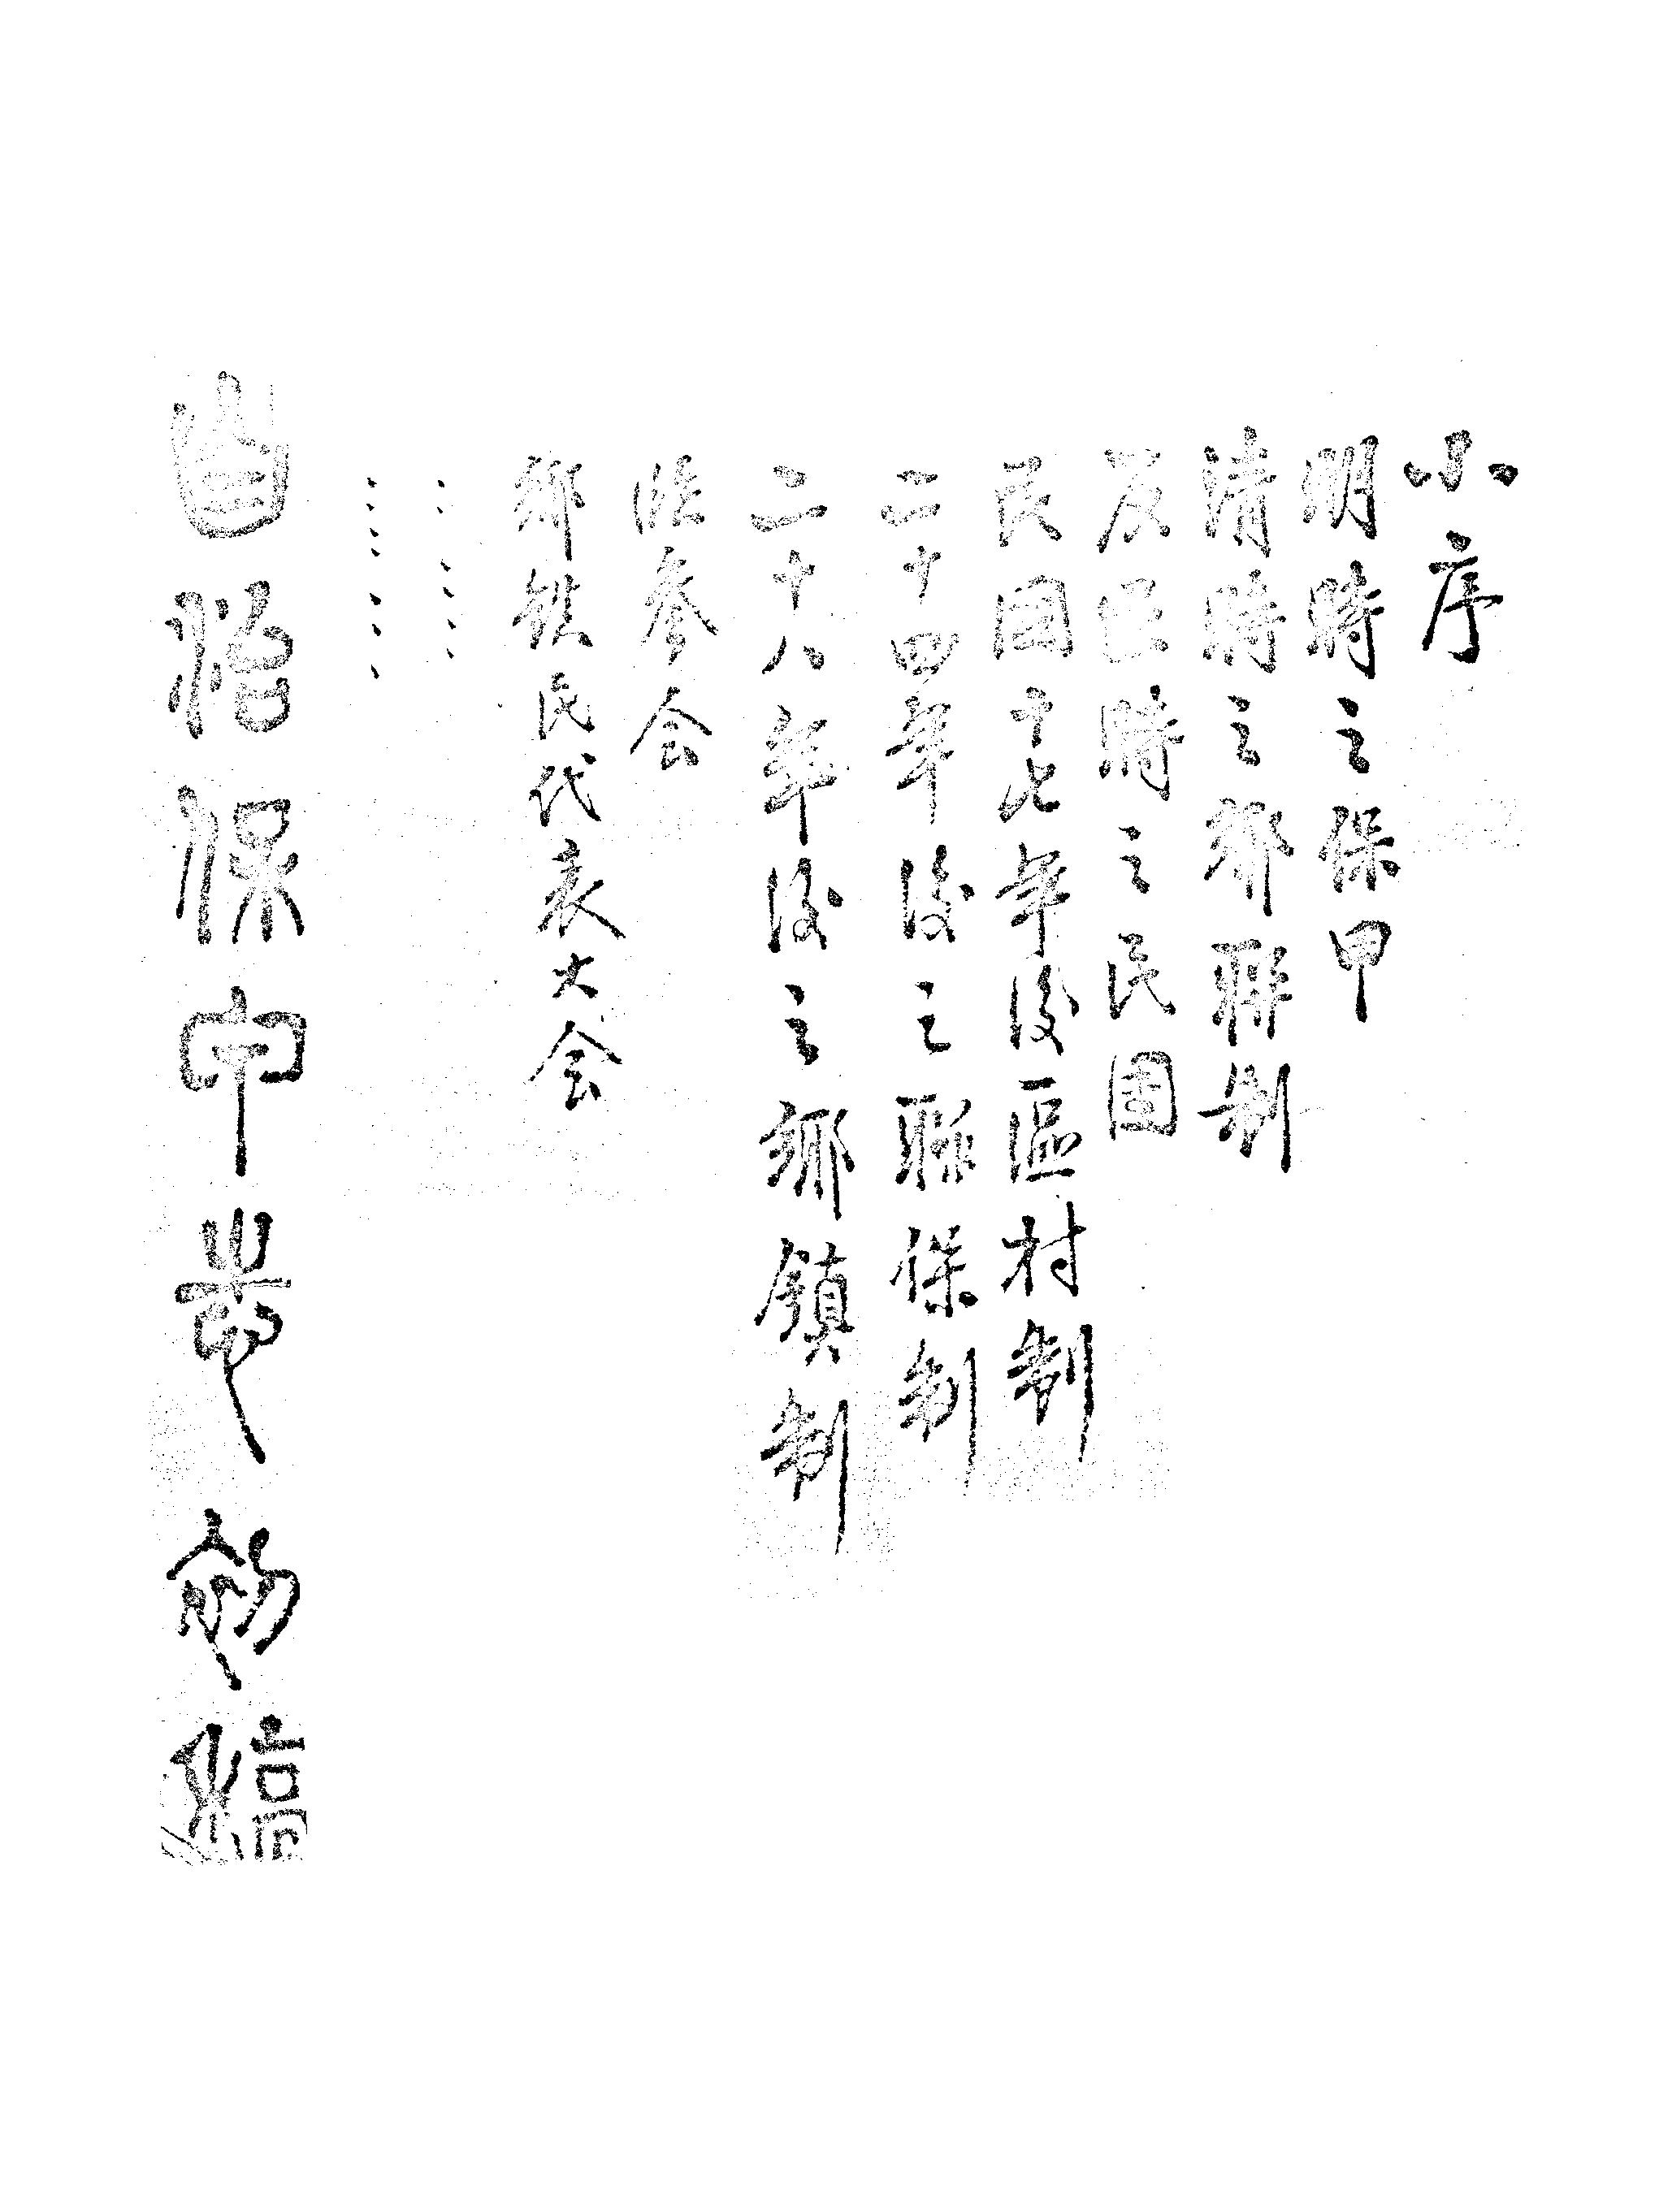 小序
明時之保甲
清時之鄉聯制
反正時之民團
民國十七年後區村制
二十四年後之聯保制
二十八年後之鄉鎮制
臨參会
鄉鎮民代表大会
……
……
自治保甲表初稿